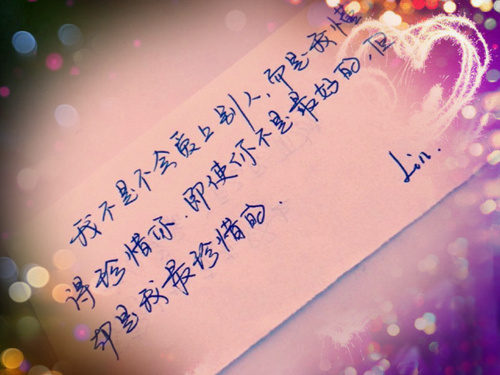 我不是不会爱上别人,而是我懂
得珍惜你.即使你不是最好的,但
却是我最珍惜的.
Lin.